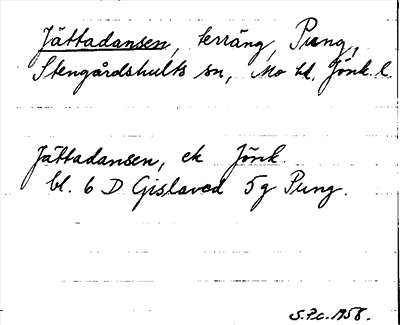 Jättadansen, terräng, Pung,
Stengårdshults sn, Mo hd. Jönk. l.
Jättadansen, ek Jönk.
bl. 6 D Gislaved 5g Pung.
1958.